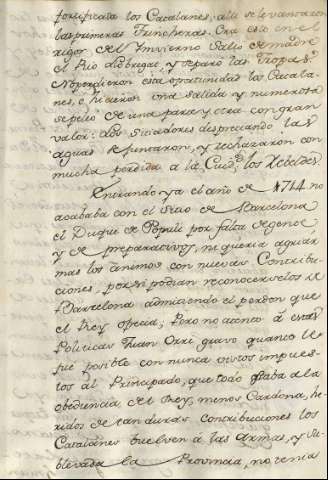 fortificara los Catalanes, alli se levantaron
las primeras Trincheras. Era esto en el
rigor del Imvierno Salio de madre
el Rio Llobregat, y separò las Tropas:
No perdieron esta oportunidad los Catala-
nes, è hicieron una salida y numerosa
se peleò de una parte y otra con gran
valor: los Sitiadores despreciando las
aguas se juntaron, y rechazaron con
mucha perdida a la Ciud.d los Rebeldes.
Entrando ya el año de 1714 no
acababa con el Sitio de Barcelona
el Duque de Populi por falta de gente
y de preparativos, ni queria agriar
mas los animos con nuevas Contribu-
ciones, por si podian reconocerse los de
Barcelona admitiendo el perdon que
el Rey ofrecia; Pero no atento à estas
Politicas Juan Orri gravò quanto le
fue posible con nunca vistos impues-
tos al Principado, que todo estaba a la
obediencia del Rey, menos Cardona, he-
ridos de tan duras contribuciones los
Catalanes buelven a las Armas, y su-
blevada la Provincia, no tenia